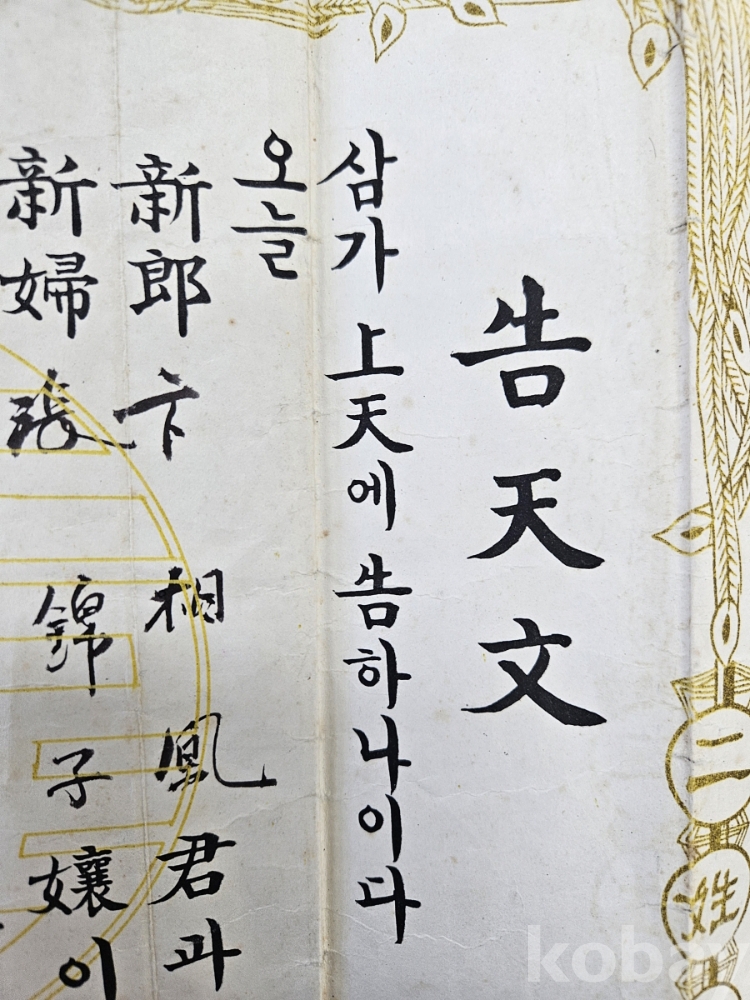 告天文
삼가 上天에 告하나이다
오늘
新郎 卞 相鳳君과
新婦 張 錦子孃이
二姓
kobay